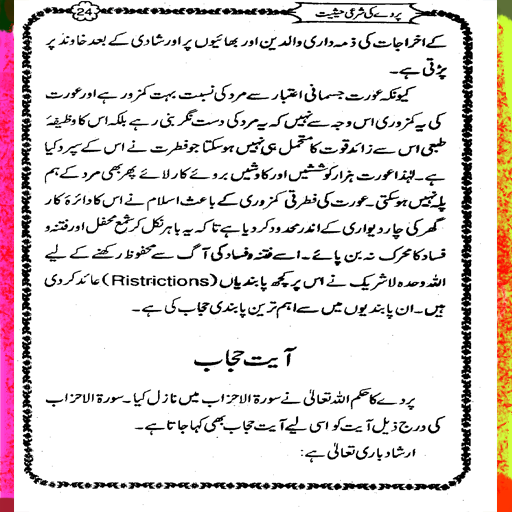 پردے کی شرعی حیثیت
24
کے اخراجات کی ذمہ داری والدین اور بھائیوں پر اور شادی کے بعد خاوند پر
پڑتی ہے۔
کیونکہ عورت جسمانی اعتبار سے مرد کی نسبت بہت کمزور ہے اور عورت
کی یہ کمزوری اس وجہ سے نہیں کہ یہ مرد کی دست نگر بنی رہے بلکہ اس کا وظیفۂ
طبعی اس سے زائد قوت کا متحمل ہی نہیں ہوسکتا جو فطرت نے اس کے سپرد کیا
ہے۔ لہٰذا عورت ہزار کوششیں اور کاوشیں بروئے کار لائے پھر بھی مرد کے ہم
پلہ نہیں ہوسکتی۔ عورت کی فطرتی کمزوری کے باعث اسلام نے اس کا دائرہ کار
گھر کی چار دیواری کے اندر محدود کر دیا ہے تا کہ یہ باہر نکل کر شمع محفل اور فتنہ و
فساد کا محرک نہ بن پائے۔ اسے فتنہ و فساد کی آگ سے محفوظ رکھنے کے لیے
اللہ وحدہ لاشریک نے اس پر کچھ پابندیاں (Ristrictions) عائد کردی
ہیں۔ ان پابندیوں میں سے اہم ترین پابندی حجاب کی ہے۔
آیت حجاب
پردے کا حکم اللہ تعالیٰ نے سورۃ الاحزاب میں نازل کیا۔ سورۃ الاحزاب
کی درج ذیل آیت کو اسی لیے آیت حجاب بھی کہا جاتا ہے۔
ارشاد باری تعالیٰ ہے: